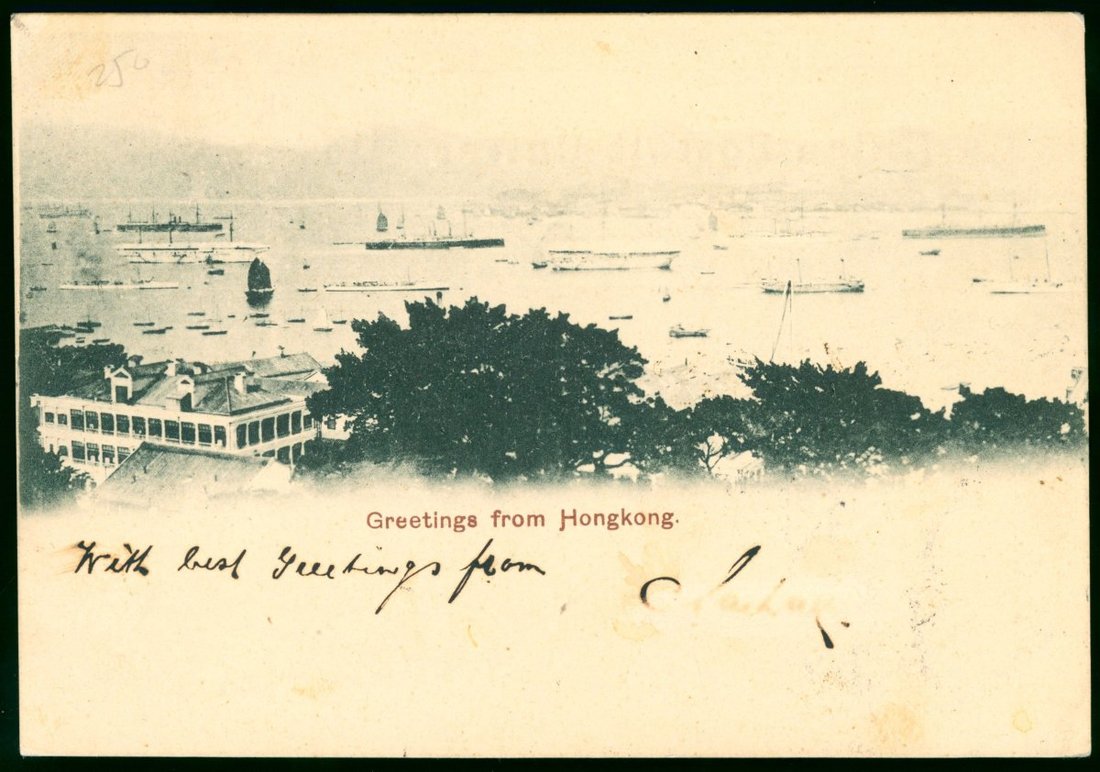 250
Greetings from Hongkong.
With best Greetings from